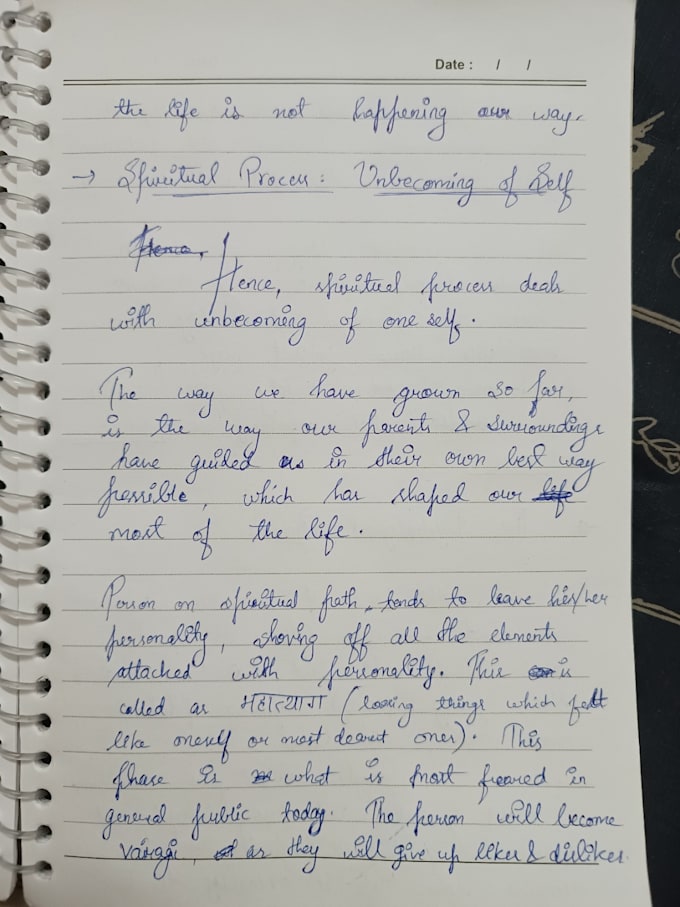 Date : / /
the life is not happening our way.
→ Spiritual Process : Unbecoming of Self
Hence,
Hence, spiritual process deals
with unbecoming of one self.
The way we have grown so far,
is the way our parents & surroundings
have guided us in their own best way
possible, which has shaped our life
most of the life.
Person on spiritual path, tends to leave his/her
personality, shoving off all the elements
attached with personality. This is
called as महात्याग (loosing things which felt
like oneself or most dearest ones). This
phase is what is most feared in
general public today. The person will become
Vairagi, as they will give up likes & dislikes.